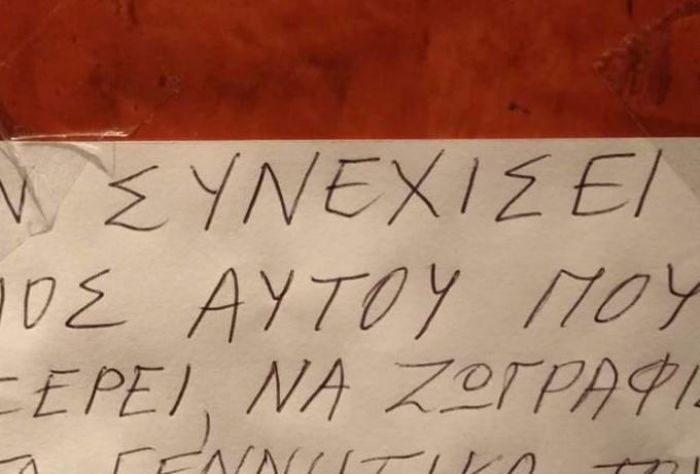 Ν ΣΥΝΕΧΙΣΕΙ
ΙΟΣ ΑΥΤΟΥ ΠΟΥ
ΞΕΡΕΙ, ΝΑ ΖΩΓΡΑΦΙΣ
ΤΑ ΓΕΝΝΗΤΙΚΑ